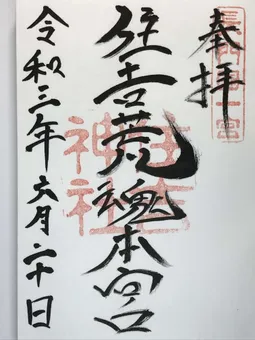 奉拝
長門国一宮
住吉荒魂本宮
住吉神社
令和三年六月二十日